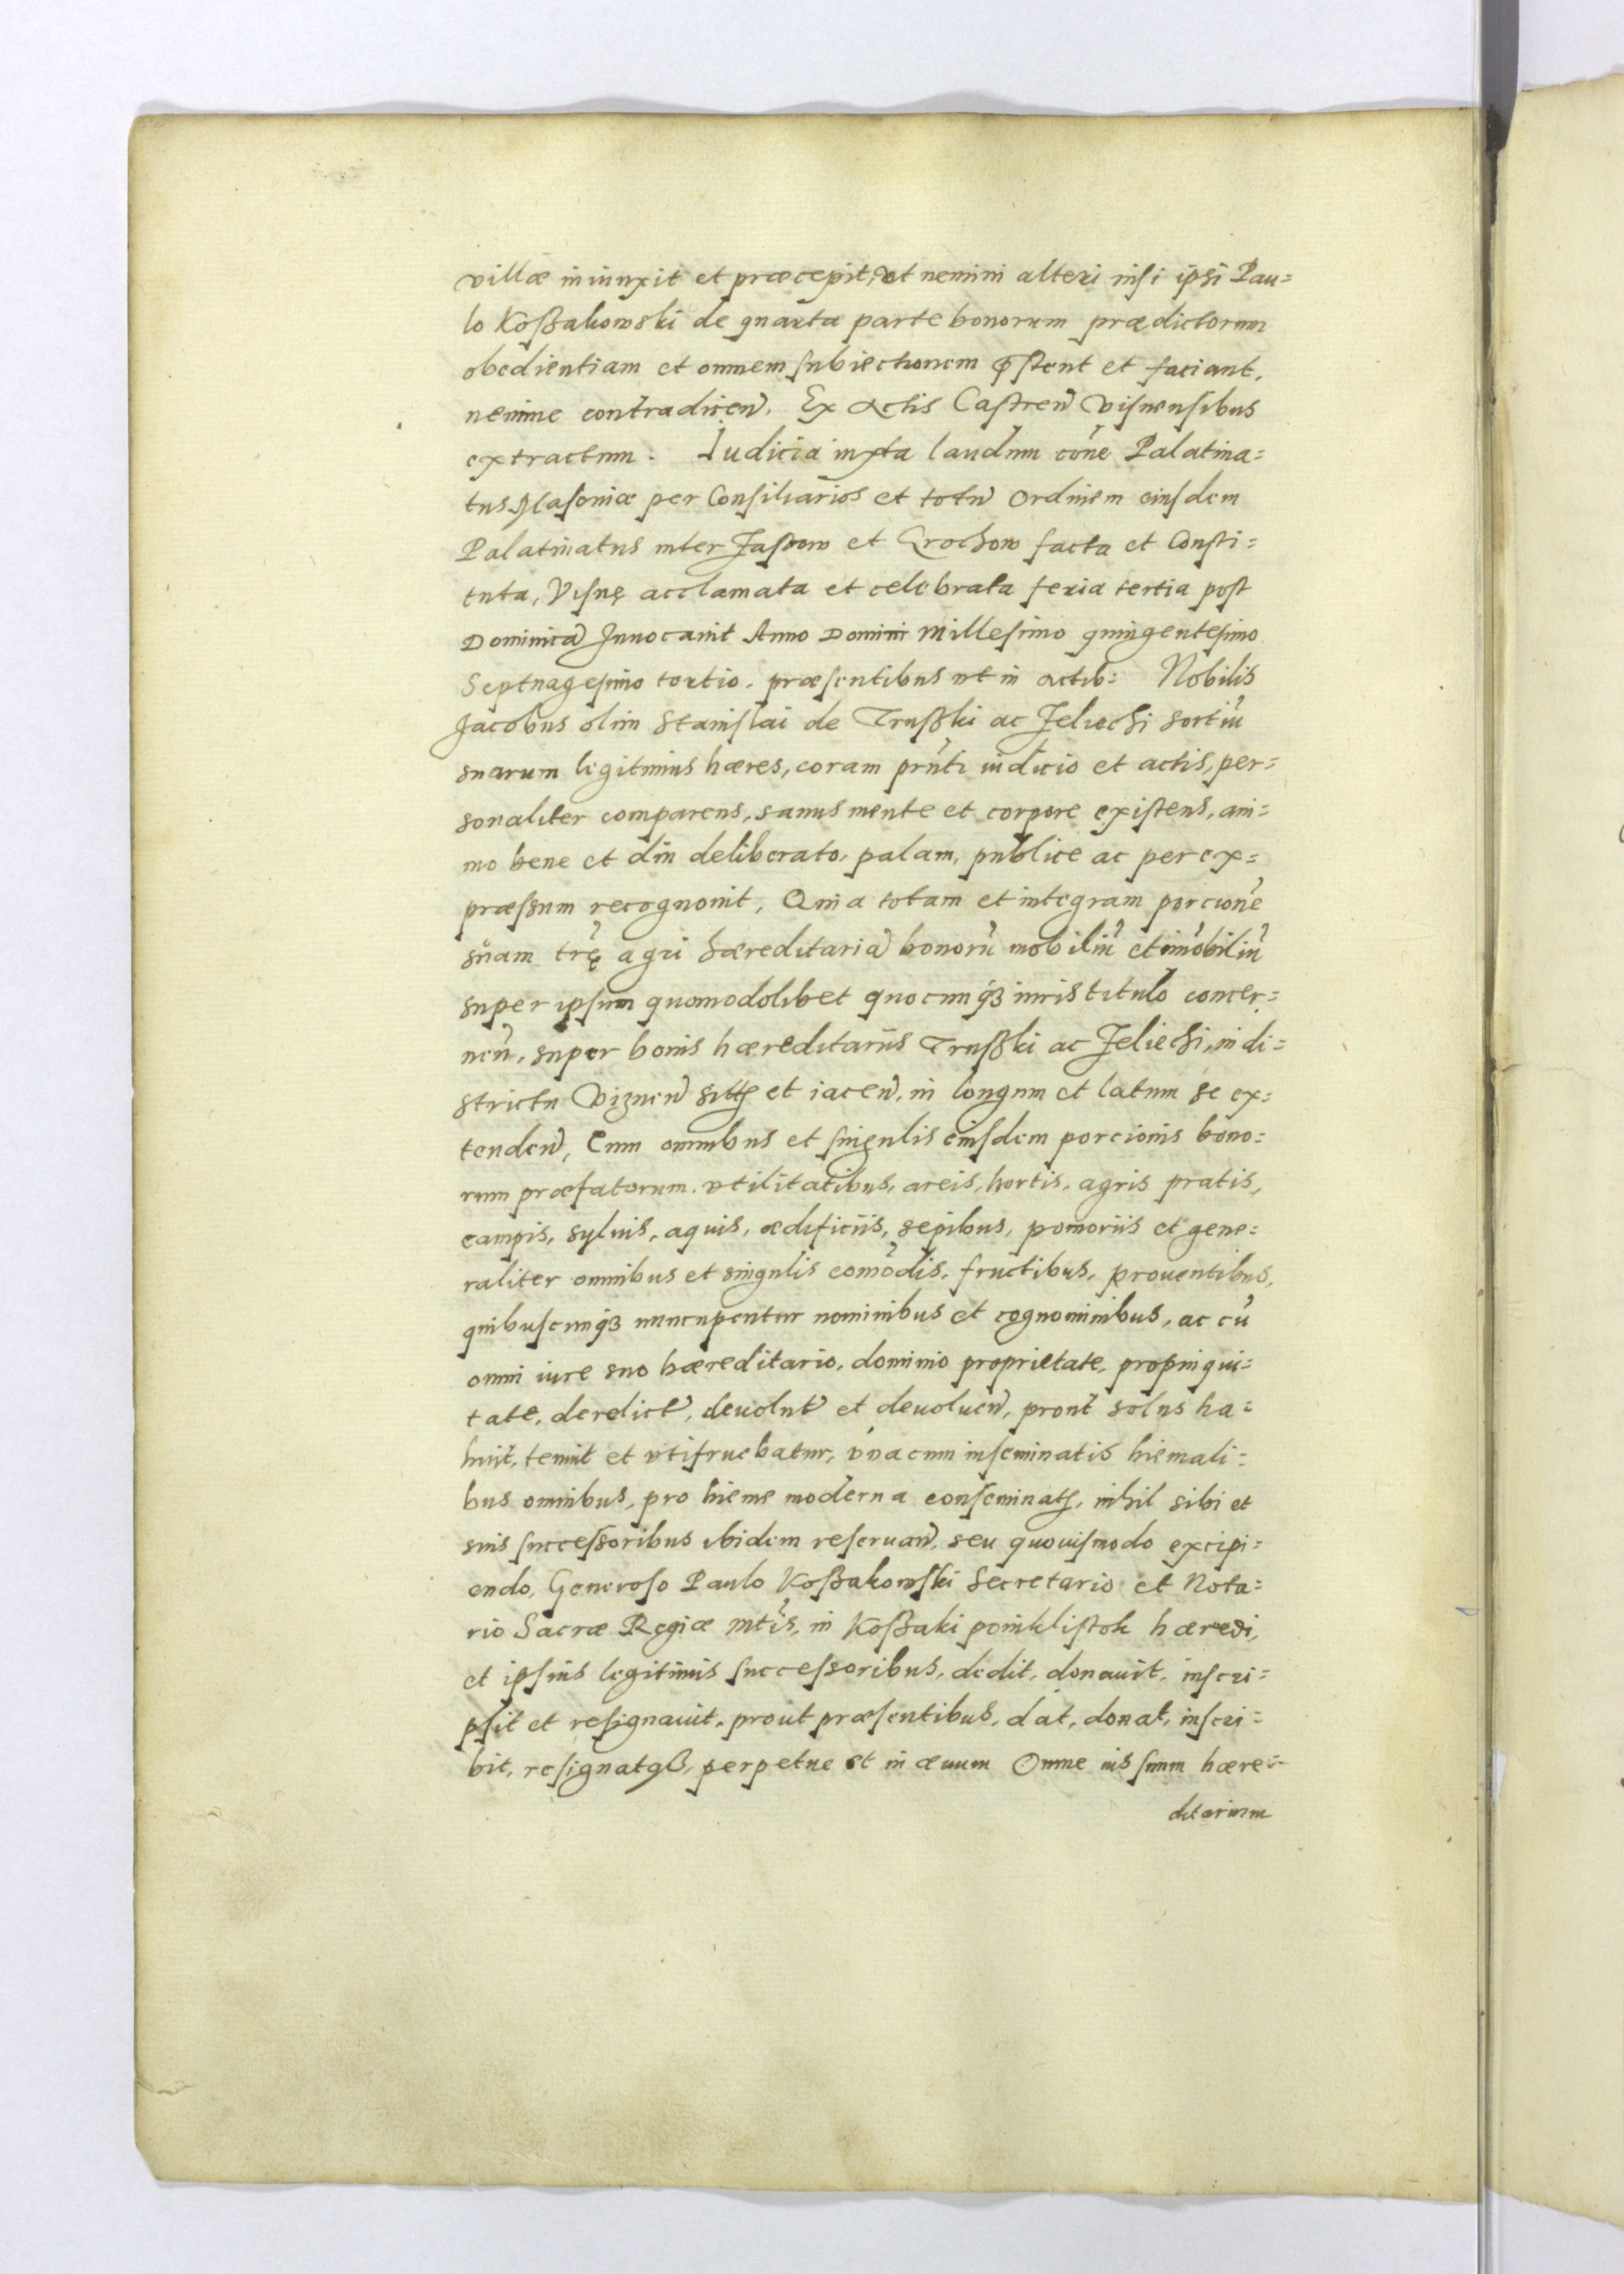 villæ iniunxit et præcepit, vt nemini alteri nisi ipsi Pau=
lo Koßakowski de quarta parte bonorum prædictorum
obedientiam et omnem subiectionem p̃stent et faciant,
nemine contradicen̄. Ex Actis Castren̄ Visnensibus
extractum. Iudicia iuxta laudum cōne Palatina=
tus Masoniæ per Consiliarios et totū Ordinem eiusdem
Palatinatus inter Jastrow et Grochow facta et Consti=
tuta, Visnę acclamata et celebrata feria tertia post
Dominicā Inuocauit Anno Domini Millesimo quingentesimo
Septuagesimo tertio. præsentibus vt in actib: Nobilis
Jacobus olim Stanislai de Trußki ac Jeliechi sortiū
suarum legitimus hæres, coram pr̄nti iudicio et actis, per=
sonaliter comparens, sanus mente et corpore existens, ani=
mo bene et diu deliberato, palam, publice ac per ex=
præssum recognouit, Quia totam et integram porcionē
suam tr̄ę agri hæreditariā bonorū mobiliū et im̄obiliū
super ipsum quomodolibet quocunq́3 iuris titulo concer=
nen̄, super bonis hæreditariis Trußki ac Jeliechi, in di=
strictu Viznen̄ sitis et iacen̄, in longum et latum se ex=
tenden̄, Cum omnibus et singulis eiusdem porcionis bono=
rum præfatorum. vtilitatibus, areis, hortis, agris pratis,
campis, syluis, aquis, ædificiis, sepibus, pomoriis et gene=
raliter omnibus et singulis com̄odis, fructibus, prouentibus,
quibuscunq́3 nuncupentur nominibus et cognominibus, ac cū
omni iure suo hæreditario, dominio proprietate, propinqui=
tate, derelict̄, deuolut̄ et deuoluen̄, prout solus ha=
buit, tenuit et vtifruebatur, vna cum inseminatis hiemali=
bus omnibus, pro hieme moderna conseminatis, nihil sibi et
suis successoribus ibidem reseruan̄, seu quouismodo excipi=
endo, Generoso Paulo Koßakowski Secretario et Nota=
rio Sacræ Regiæ Mt̄is, in Koßaki poniklistok hæredi,
et ipsius legitimis successoribus, dedit, donauit, inscri=
psit et resignauit, prout præsentibus, dat, donat, inscri=
bit, resignatqß, perpetue et in æuum Omne ius suum hære=
ditarium